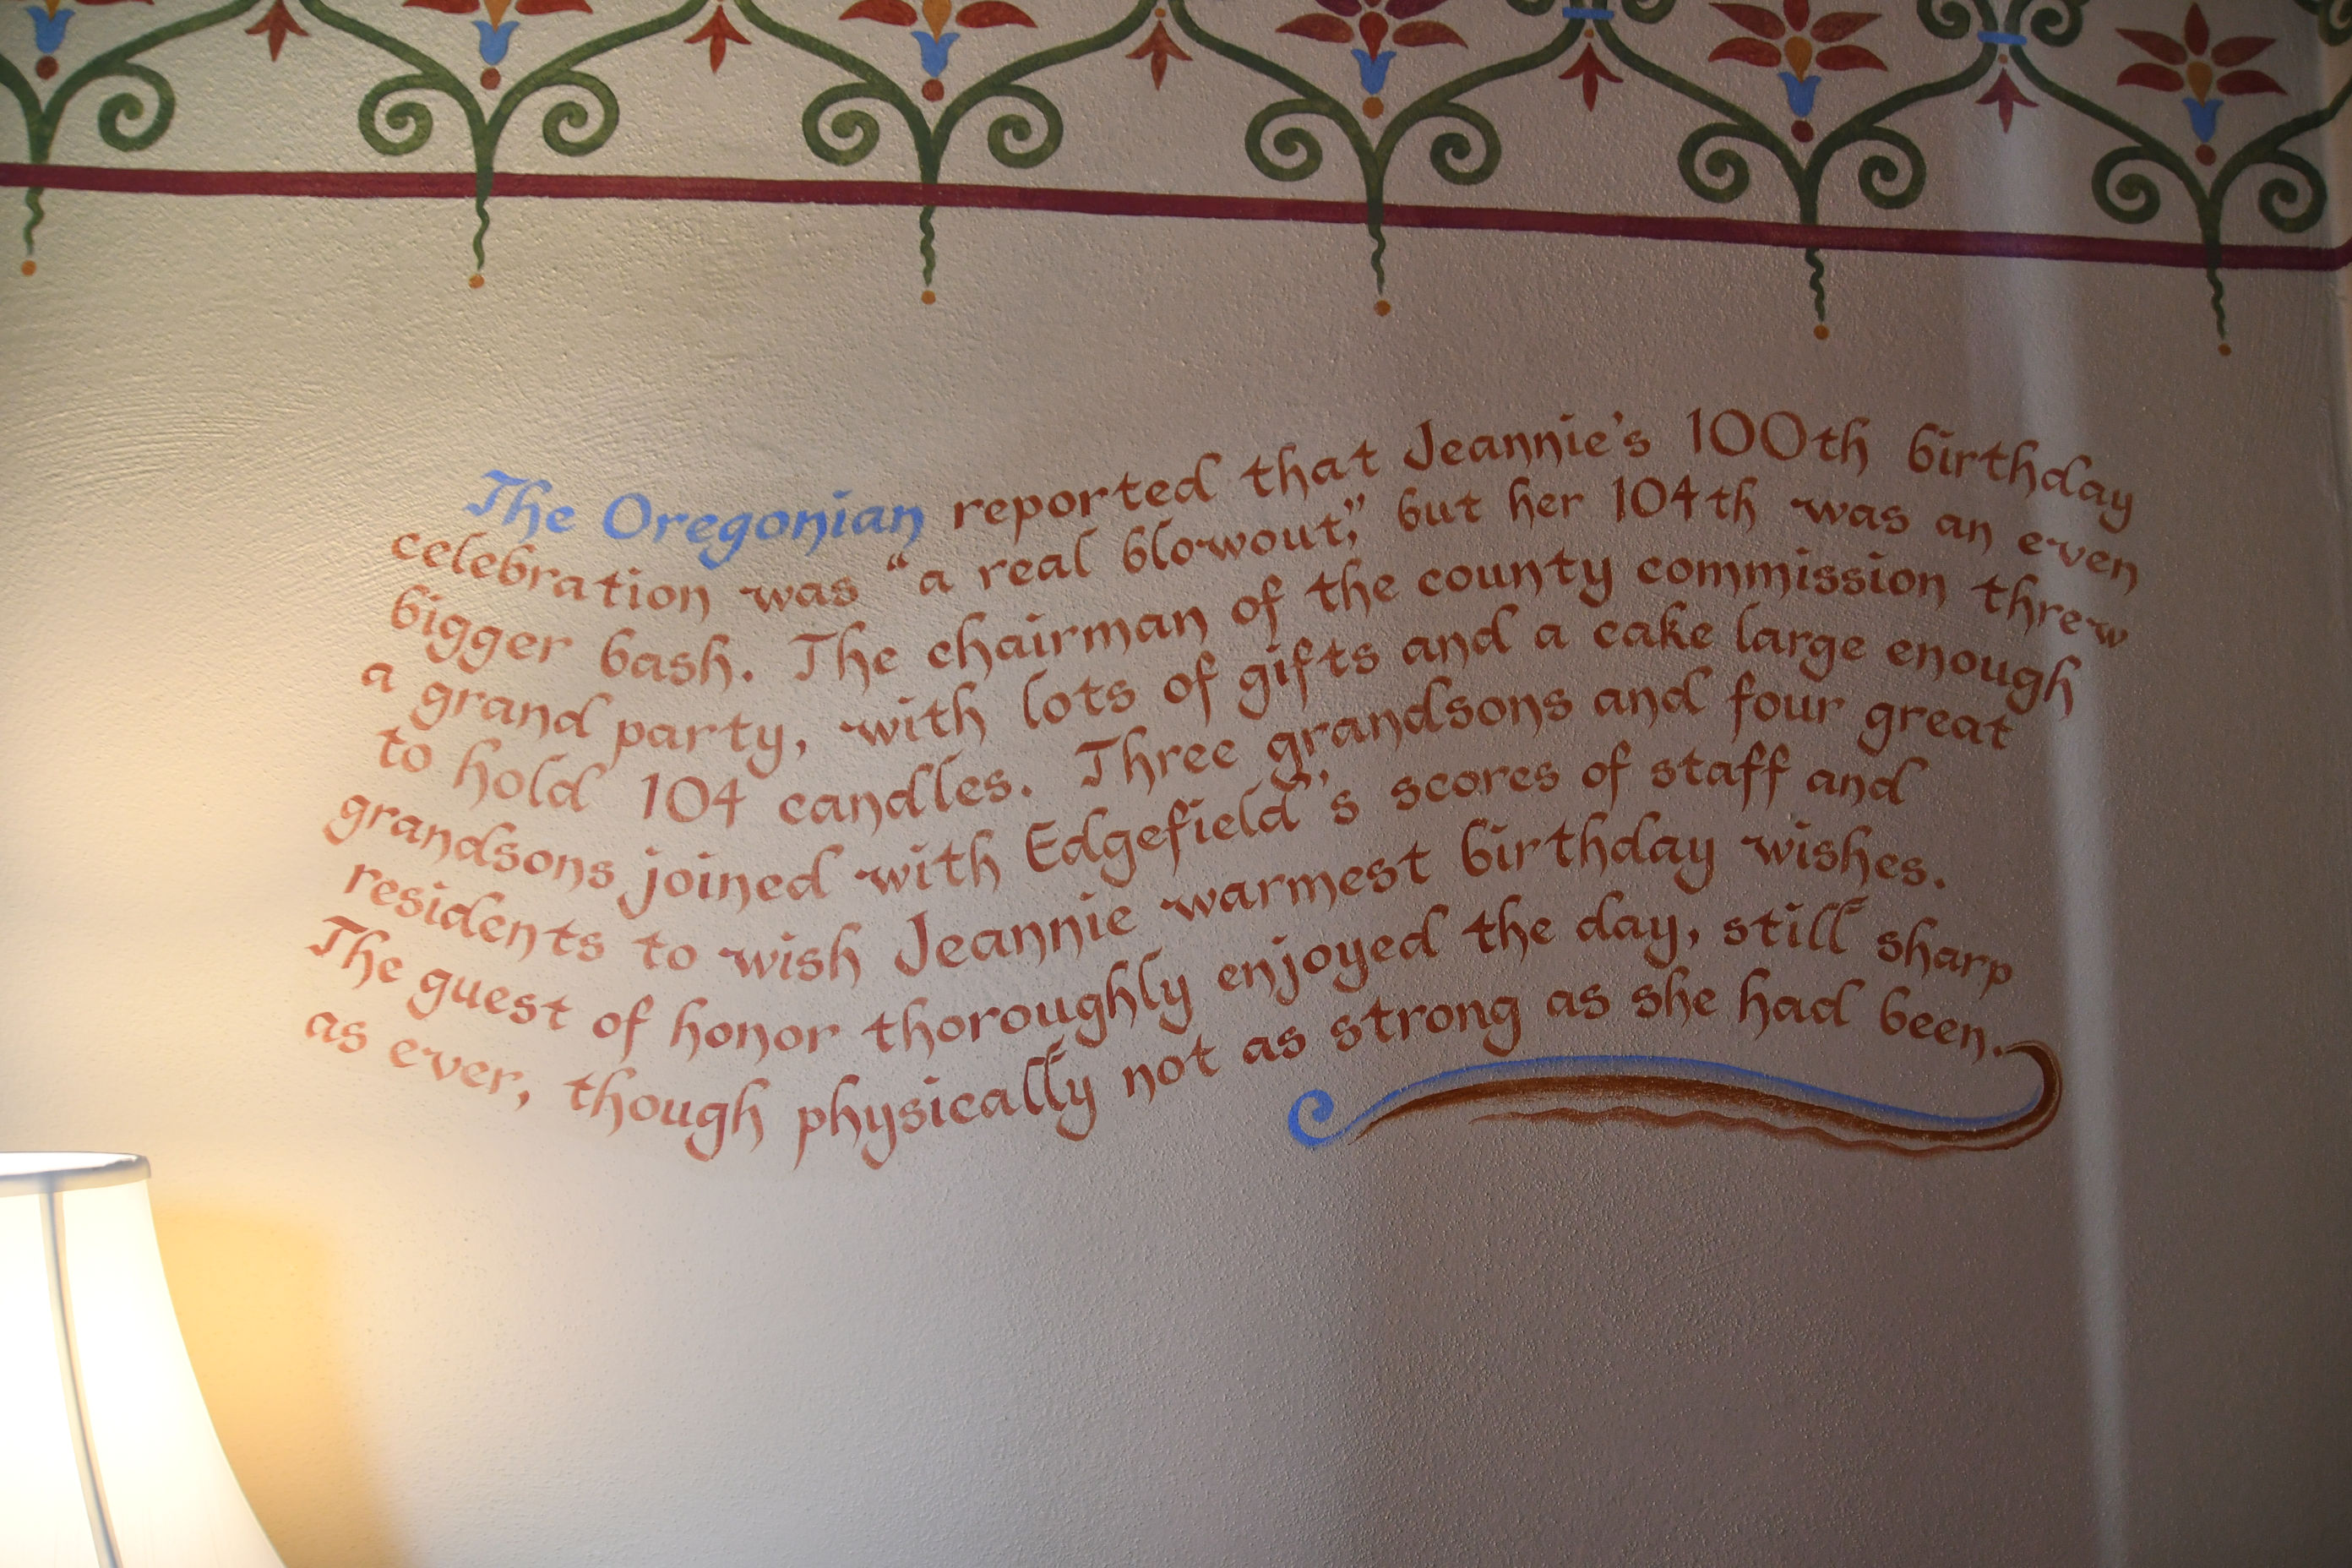 The Oregonian reported that Jeannie's 100th birthday
celebration was "a real blowout," but her 104th was an even
bigger bash. The chairman of the county commission threw
a grand party, with lots of gifts and a cake large enough
to hold 104 candles. Three grandsons and four great
grandsons joined with Edgefield's scores of staff and
residents to wish Jeannie warmest birthday wishes.
The guest of honor thoroughly enjoyed the day, still sharp
as ever, though physically not as strong as she had been.